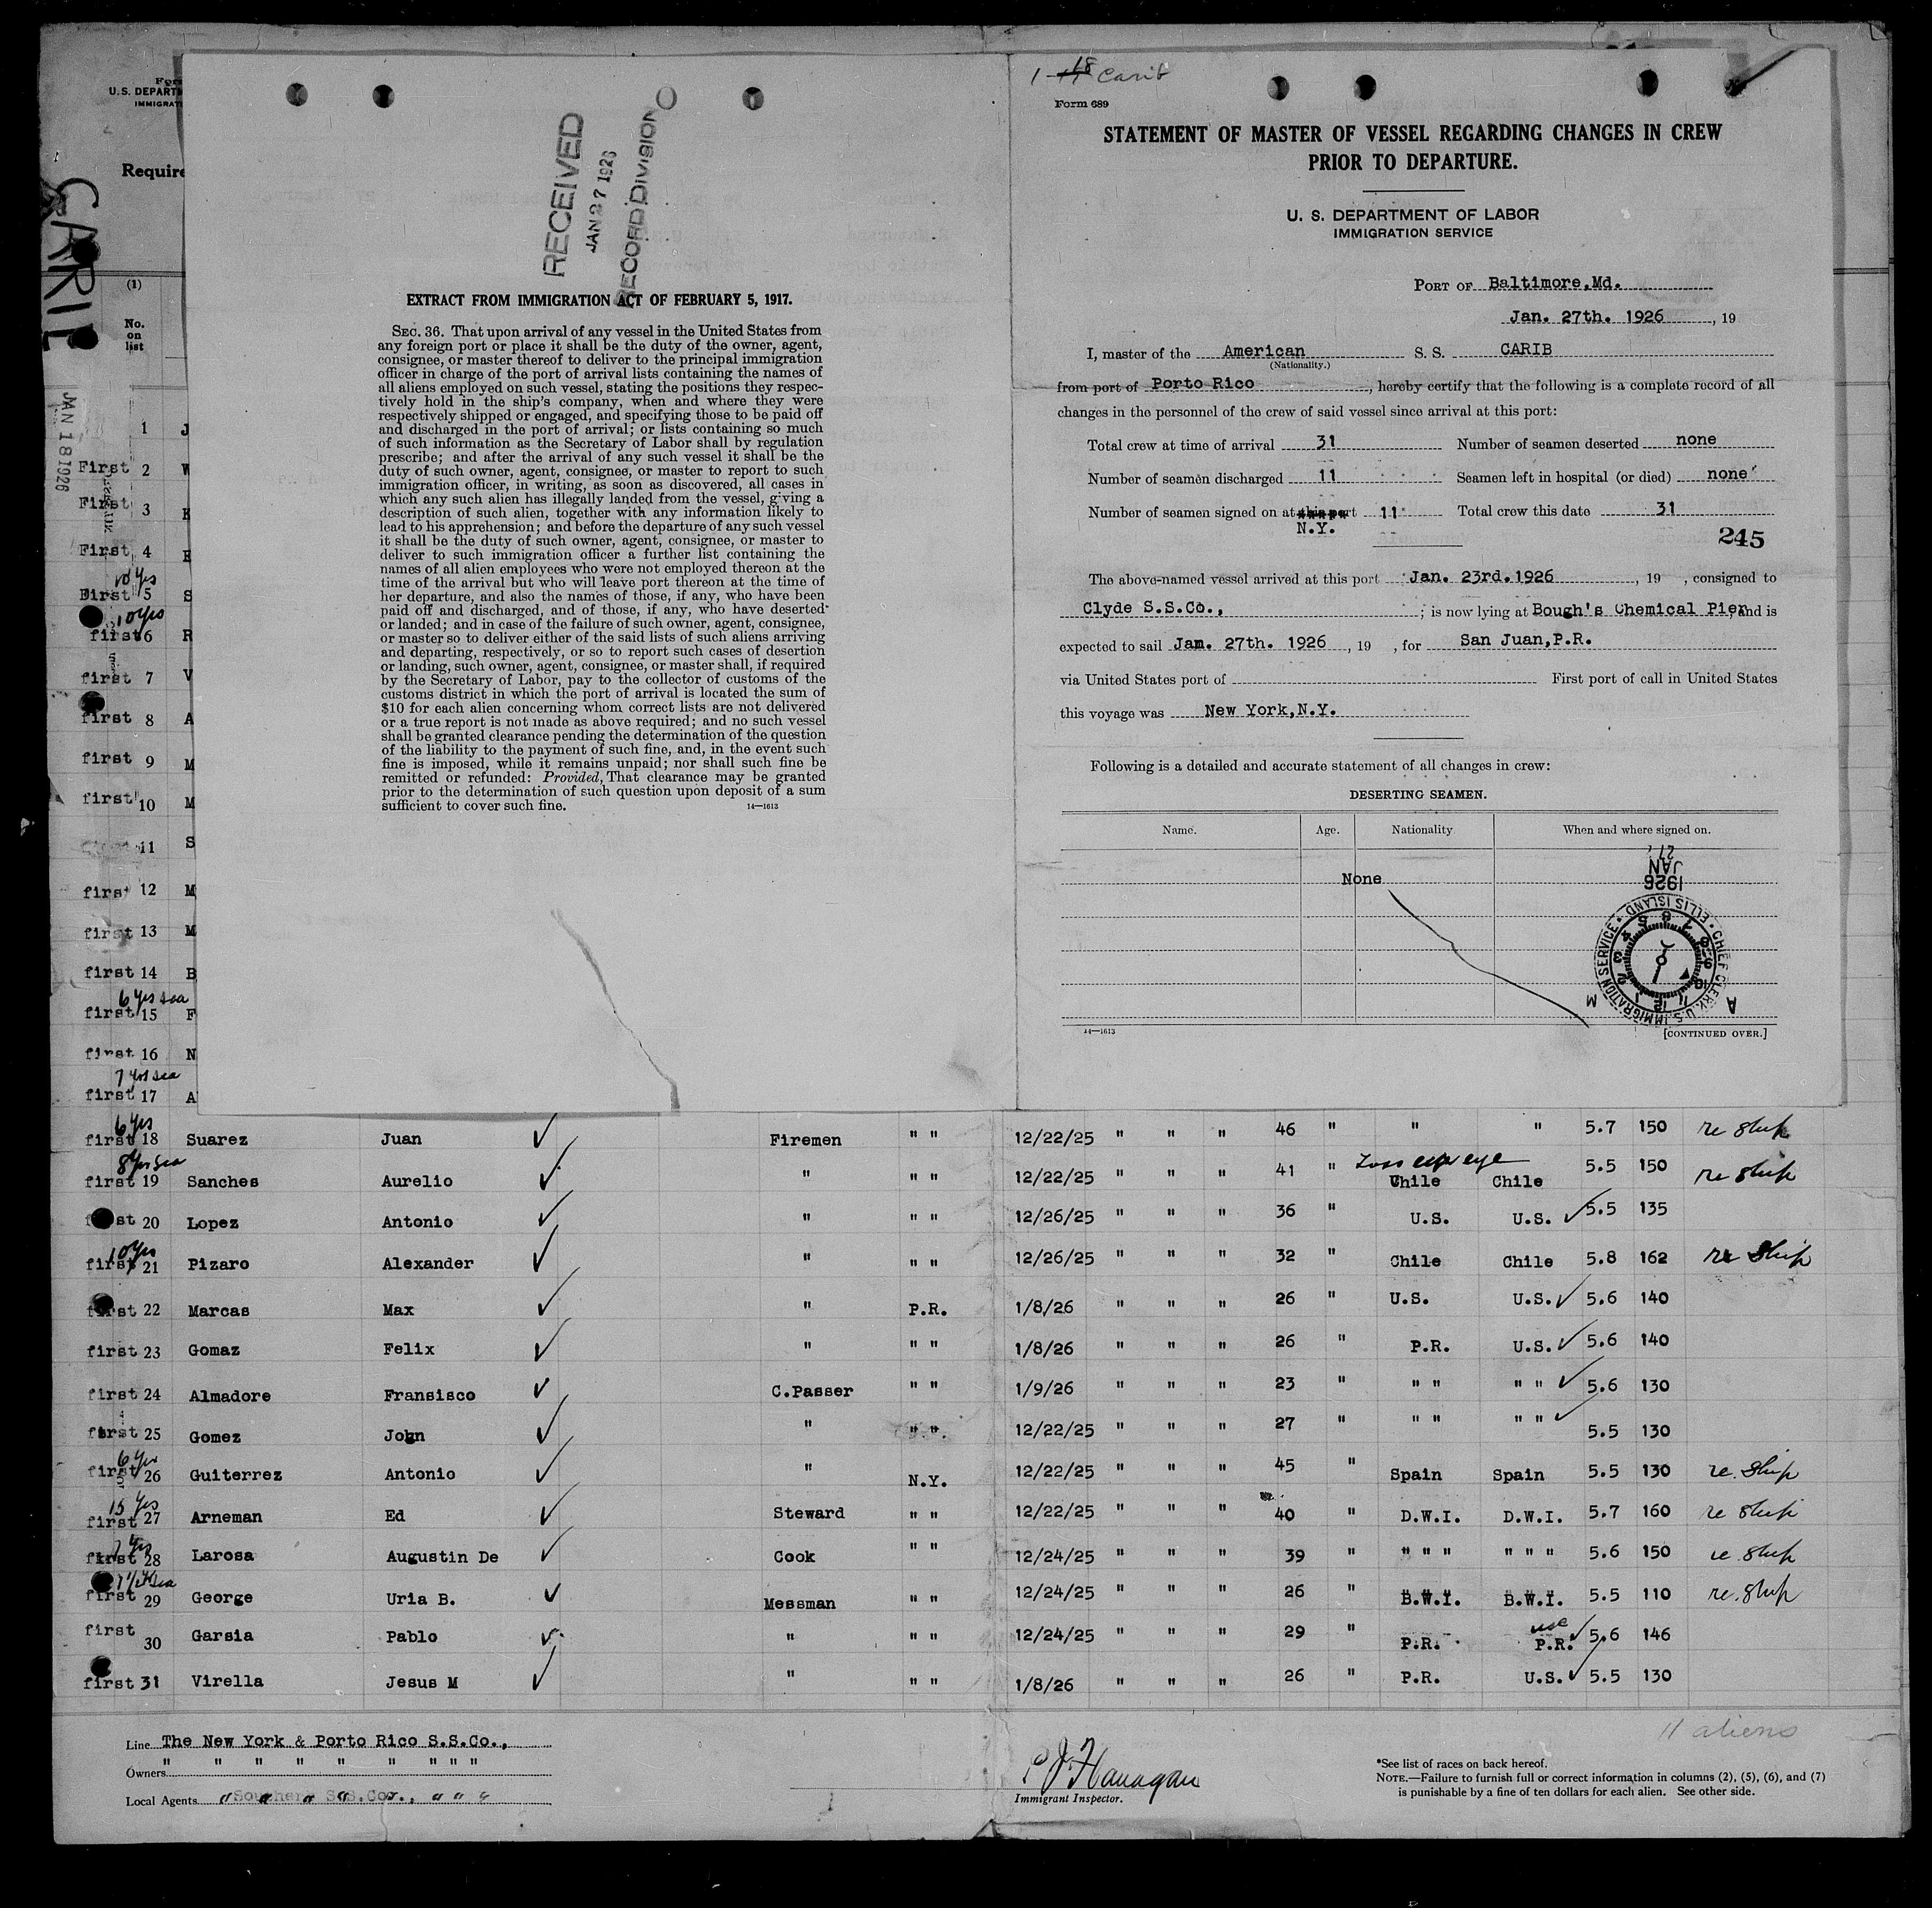 Form
U.S. DEPART
IMMIGRAT
Require
CARIB
(1)
No.
on
list
JAN 18 1926
1 J
First 2 W
First 3
First 4
10 Yrs
First 5 S
10 yrs
first 6 R
first 7 V
first 8 A
first 9 M
first 10 M
11 S
first 12 M
first 13 M
first 14 B
6 yrs sea
first 15 F
first 16 N
7 yrs sea
first 17 A
RECEIVED
JAN 27 1926
RECORD DIVISION
EXTRACT FROM IMMIGRATION ACT OF FEBRUARY 5, 1917.
SEC. 36. That upon arrival of any vessel in the United States from
any foreign port or place it shall be the duty of the owner, agent,
consignee, or master thereof to deliver to the principal immigration
officer in charge of the port of arrival lists containing the names of
all aliens employed on such vessel, stating the positions they respec-
tively hold in the ship's company, when and where they were
respectively shipped or engaged, and specifying those to be paid off
and discharged in the port of arrival; or lists containing so much
of such information as the Secretary of Labor shall by regulation
prescribe; and after the arrival of any such vessel it shall be the
duty of such owner, agent, consignee, or master to report to such
immigration officer, in writing, as soon as discovered, all cases in
which any such alien has illegally landed from the vessel, giving a
description of such alien, together with any information likely to
lead to his apprehension; and before the departure of any such vessel
it shall be the duty of such owner, agent, consignee, or master to
deliver to such immigration officer a further list containing the
names of all alien employees who were not employed thereon at the
time of the arrival but who will leave port thereon at the time of
her departure, and also the names of those, if any, who have been
paid off and discharged, and of those, if any, who have deserted
or landed; and in case of the failure of such owner, agent, consignee,
or master so to deliver either of the said lists of such aliens arriving
and departing, respectively, or so to report such cases of desertion
or landing, such owner, agent, consignee, or master shall, if required
by the Secretary of Labor, pay to the collector of customs of the
customs district in which the port of arrival is located the sum of
$10 for each alien concerning whom correct lists are not delivered
or a true report is not made as above required; and no such vessel
shall be granted clearance pending the determination of the question
of the liability to the payment of such fine, and, in the event such
fine is imposed, while it remains unpaid; nor shall such fine be
remitted or refunded: Provided, That clearance may be granted
prior to the determination of such question upon deposit of a sum
sufficient to cover such fine. 14—1613
1-18 Carib
Form 689
STATEMENT OF MASTER OF VESSEL REGARDING CHANGES IN CREW
PRIOR TO DEPARTURE.
U. S. DEPARTMENT OF LABOR
IMMIGRATION SERVICE
PORT OF Baltimore,Md.
Jan. 27th. 1926, 19
I, master of the American S. S. CARIB
(Nationality.)
from port of Porto Rico, hereby certify that the following is a complete record of all
changes in the personnel of the crew of said vessel since arrival at this port:
Total crew at time of arrival 31 Number of seamen deserted none
Number of seamen discharged 11 Seamen left in hospital (or died) none
Number of seamen signed on at this port 11 Total crew this date 31
N.Y.
245
The above-named vessel arrived at this port Jan. 23rd.1926, 19 , consigned to
Clyde S.S.Co., ; is now lying at Bough's Chemical Pier, and is
expected to sail Jan. 27th. 1926, 19 , for San Juan,P.R.
via United States port of First port of call in United States
this voyage was New York,N.Y.
Following is a detailed and accurate statement of all changes in crew:
DESERTING SEAMEN.
Name. Age. Nationality When and where signed on.
None
27
JAN
1926
CHIEF CLERK U.S. IMMIGRATION SERVICE • ELLIS ISLAND •
1 2 3 4 5 6 7 8 9 10 11 12
A M
14—1613 [CONTINUED OVER.]
6 yrs
first 18 Suarez Juan Firemen " " 12/22/25 " " " 46 " " " 5.7 150 re ship
8 yrs sea
first 19 Sanches Aurelio " " " 12/22/25 " " " 41 " Loss eye Chile Chile 5.5 150 re ship
first 20 Lopez Antonio " " " 12/26/25 " " " 36 " U.S. U.S. 5.5 135
10 yrs
first 21 Pizaro Alexander " " " 12/26/25 " " " 32 " Chile Chile 5.8 162 re ship
first 22 Marcas Max " P.R. 1/8/26 " " " 26 " U.S. U.S. 5.6 140
first 23 Gomaz Felix " " " 1/8/26 " " " 26 " P.R. U.S. 5.6 140
first 24 Almadore Fransisco C.Passer " " 1/9/26 " " " 23 " " " " " 5.6 130
first 25 Gomez John " " " 12/22/25 " " " 27 " " " " " 5.5 130
6 yrs
first 26 Guiterrez Antonio " N.Y. 12/22/25 " " " 45 " Spain Spain 5.5 130 re. ship
15 yrs
first 27 Arneman Ed Steward " " 12/22/25 " " " 40 " D.W.I. D.W.I. 5.7 160 re ship
7 yrs
first 28 Larosa Augustin De Cook " " 12/24/25 " " " 39 " " " " " " " 5.6 150 re. ship
first 29 George Uria B. Messman " " 12/24/25 " " " 26 " B.W.I. B.W.I. 5.5 110 re. ship
first 30 Garsia Pablo " " " 12/24/25 " " " 29 " P.R. P.R. 5.6 146
first 31 Virella Jesus M " " " 1/8/26 " " " 26 " P.R. U.S. 5.5 130
11 aliens
Line The New York & Porto Rico S.S.Co.,
Owners " " " " " " " " "
Local Agents Southern S.S.Co., " " "
P J Flanagan
Immigrant Inspector.
*See list of races on back hereof.
NOTE.—Failure to furnish full or correct information in columns (2), (5), (6), and (7)
is punishable by a fine of ten dollars for each alien. See other side.